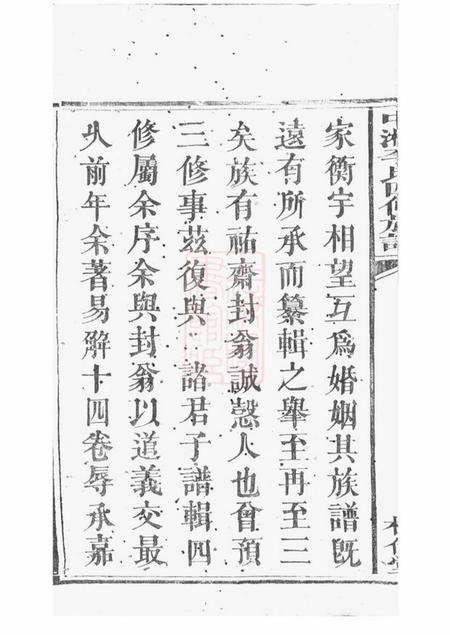 家衡宇相望互爲婚姻其族譜既
遠有所承而纂輯之舉至再至三
矣族有祐齋封翁誠愨人也曾預
三修事茲復與諸君子譜輯四
修屬余序余與封翁以道義交最
久前年余著易解十四卷辱承嘉